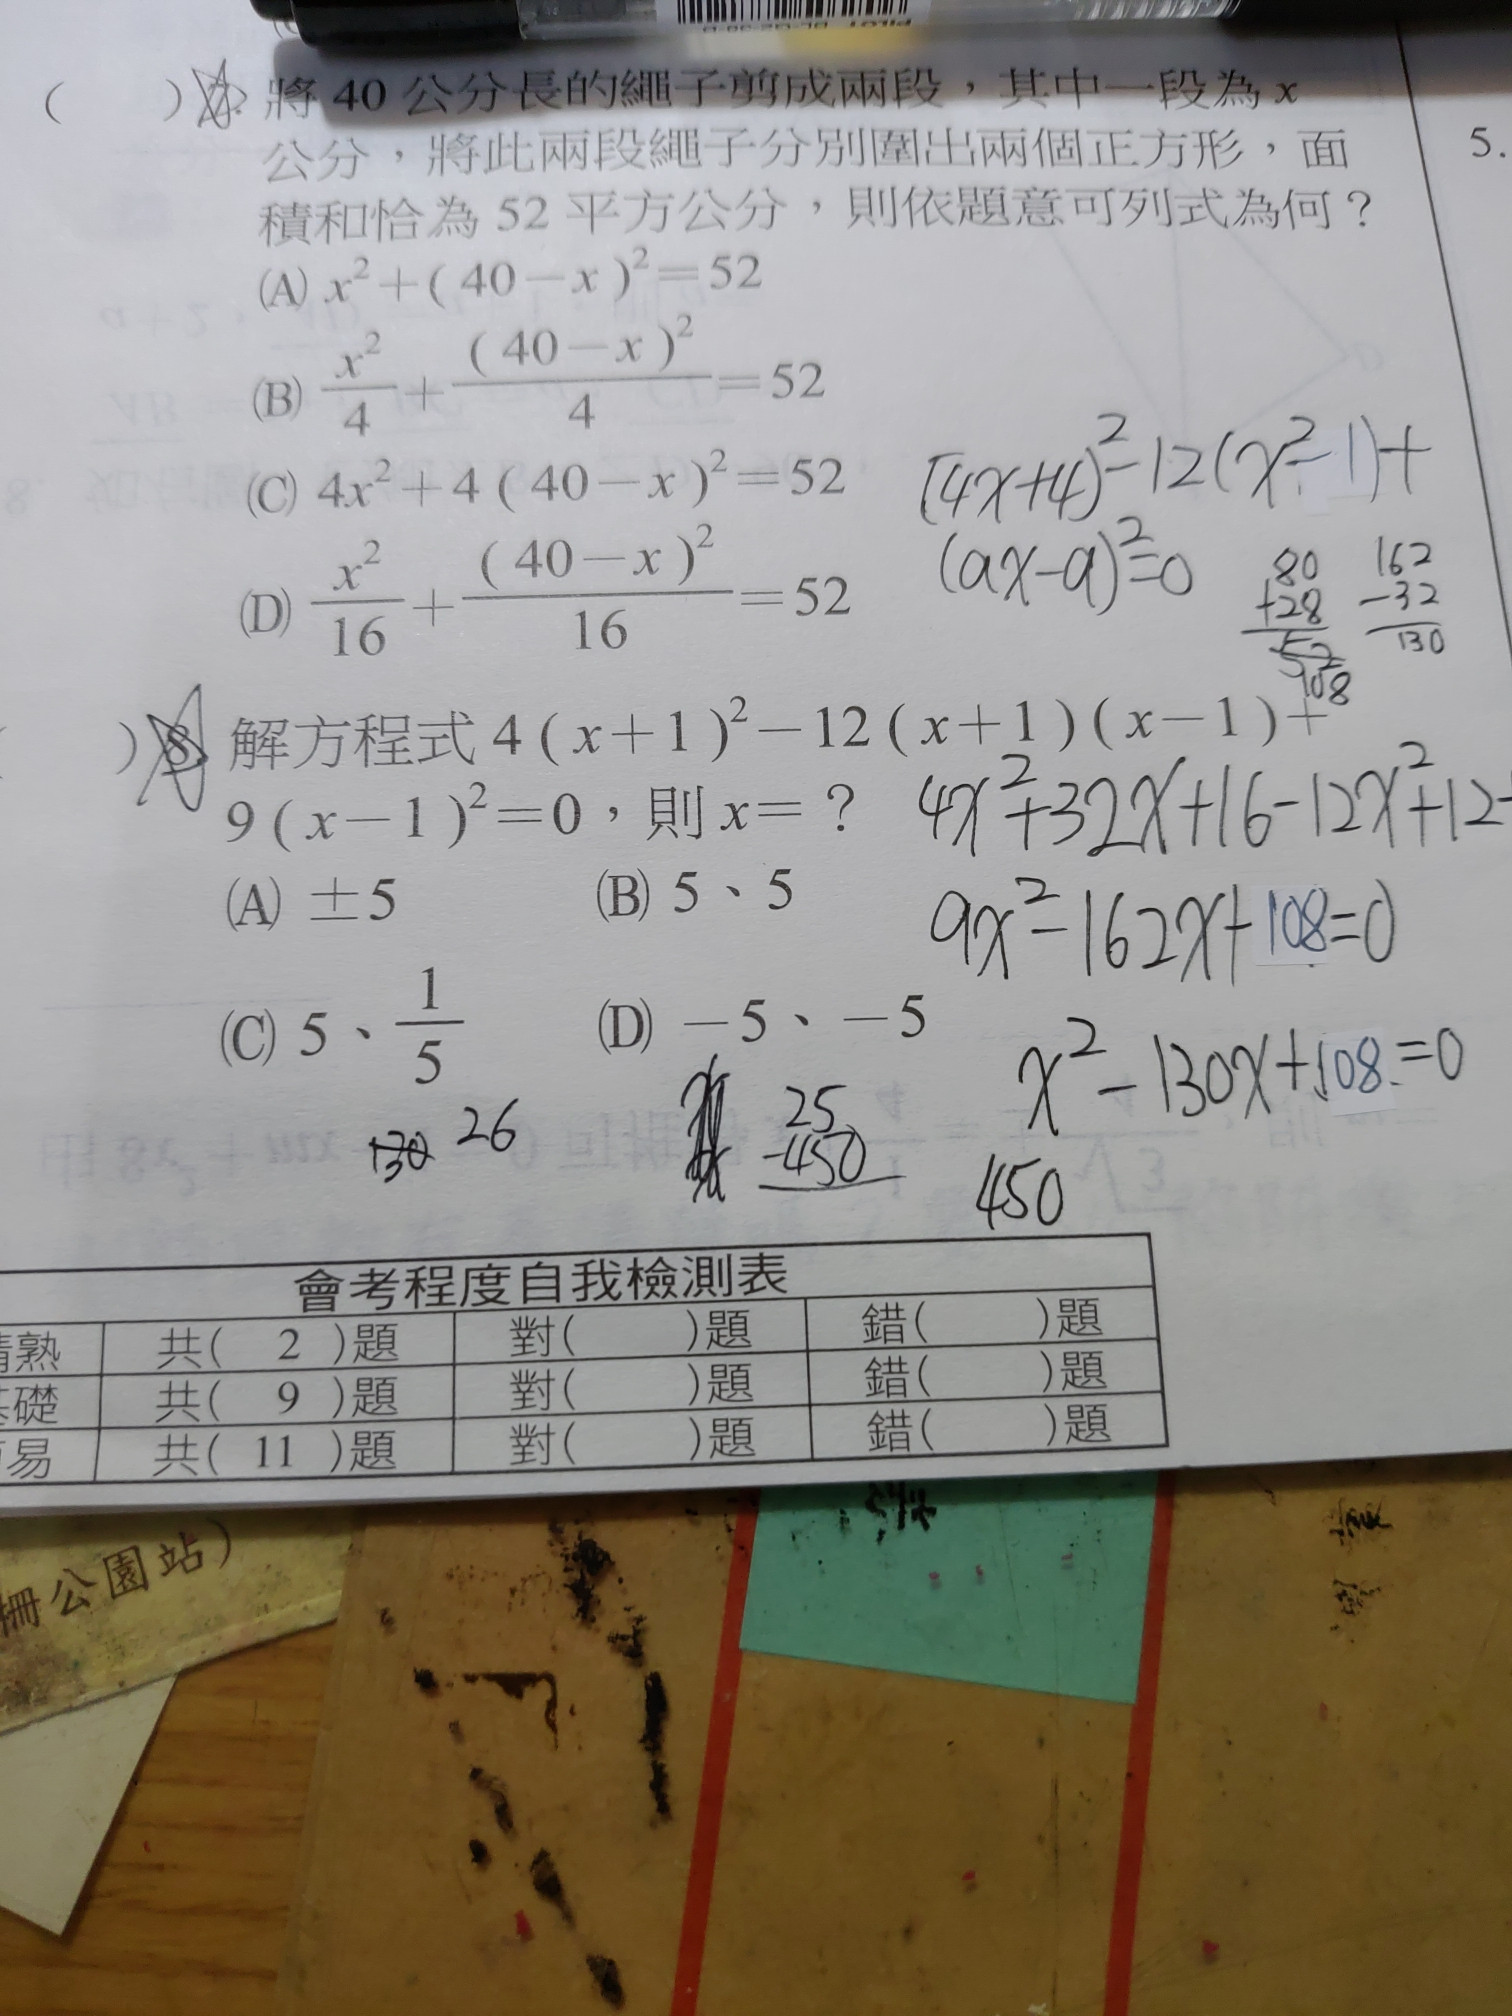 ( ) 7. 將 40 公分長的繩子剪成兩段，其中一段為 x
公分，將此兩段繩子分別圍出兩個正方形，面
積和恰為 52 平方公分，則依題意可列式為何？
(A) x²+( 40-x )²=52
(B) x²/4+( 40-x )²/4=52
(C) 4x²+4 ( 40-x )²=52
(D) x²/16+( 40-x )²/16=52
5.
(4x+4)²-12(x²-1)+
(9x-9)²=0
80
+28
108
162
-32
130
) 8. 解方程式 4 ( x+1 )²-12 ( x+1 ) ( x-1 )+
9 ( x-1 )²=0，則 x=？
(A) ±5
(B) 5、5
(C) 5、1/5
(D) -5、-5
4x²+32x+16-12x²+12-
9x²-162x+108=0
x²-130x+108=0
130 26
25
-450
450
會考程度自我檢測表
精熟 共( 2 )題 對( )題 錯( )題
基礎 共( 9 )題 對( )題 錯( )題
易 共( 11 )題 對( )題 錯( )題
柵公園站)